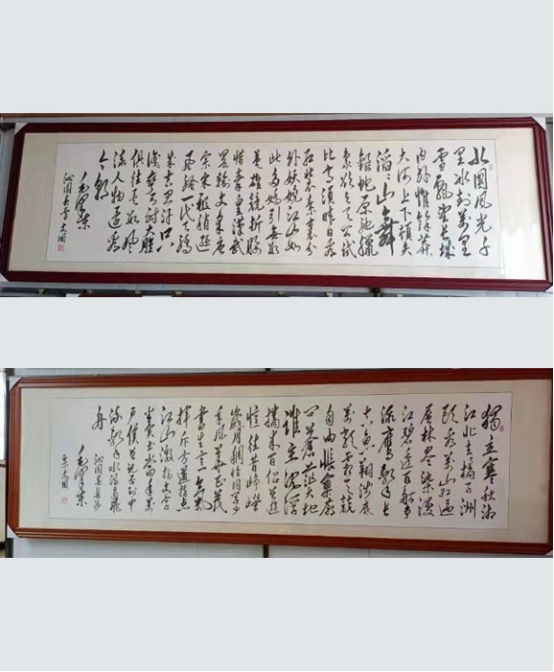 北国风光千
里冰封万里
雪飘望长城
内外惟余莽
大河上下顿失
滔滔山舞
银蛇原驰蜡
象欲与天公试
比高须晴日看
红装素裹分
外妖娆江山如
此多娇引无数
英雄竞折腰
惜秦皇汉武
略输文采唐
宗宋祖稍逊
风骚一代天骄
成吉思汗只
射大雕
俱往矣数风
流人物还看
今朝
毛泽东
沁园春雪
独立寒秋湘
江北去橘子洲
头看万山红遍
层林尽染漫
江碧透百舸争
流鹰击长
空鱼翔浅底
万类霜天竞
自由怅寥廓
问苍茫大地
谁主沉浮
携来百侣曾游
忆往昔峥嵘
岁月稠恰同学少
年风华正茂
书生意气
挥斥方遒指点
江山激扬文字
粪土当年万
户侯曾记否到中
流击水浪遏飞
舟
毛泽东
沁园春长沙